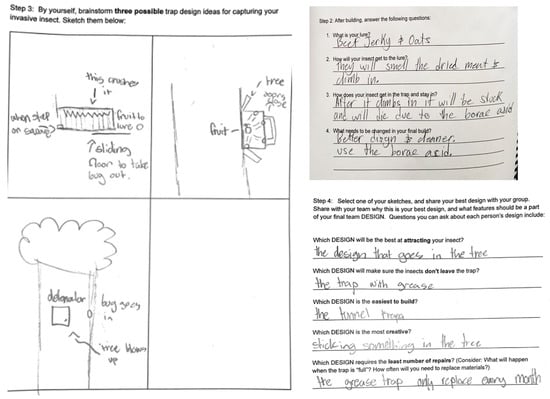 Step 3: By yourself, brainstorm three possible trap design ideas for capturing your
invasive insect. Sketch them below:
this crushes
it
when step
on
fruit to
lure
sliding
floor to take
bug out.
tree
doors
close
fruit
detonator
bug goes
in
tree blows
up
Step 2: After building, answer the following questions:
1. What is your lure?
Beef Jerky & Oats
2. How will your insect get to the lure?
They will smell the dried meat &
climb in.
3. How does your insect get in the trap and stay in?
After it climbs in it will be stuck
and will die due to the borac asid
4. What needs to be changed in your final build?
Better dizyn &
use the borac asid.
Step 4: Select one of your sketches, and share your best design with your group.
Share with your team why this is your best design, and what features should be a part
of your final team DESIGN. Questions you can ask about each person's design include:
Which DESIGN will be the best at attracting your insect?
the design that goes in the tree
Which DESIGN will make sure the insects don't leave the trap?
the trap with grease
Which DESIGN is the easiest to build?
the tunnel
Which DESIGN is the most creative?
sticking something in the tree
Which DESIGN requires the least number of repairs? (Consider: What will happen
when the trap is "full"? How often will you need to replace materials?)
the grease trap only replace every month